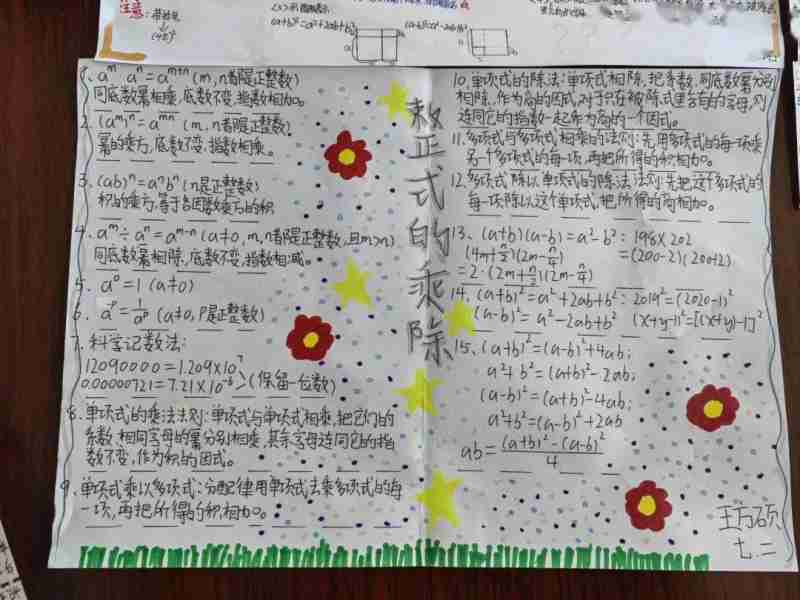 注意:
(a+b)²=a²+2ab+b²
1、aᵐ·aⁿ=aᵐ⁺ⁿ(m,n都是正整数)
同底数幂相乘,底数不变,指数相加。
2、(aᵐ)ⁿ=aᵐⁿ(m,n都是正整数)
幂的乘方,底数不变,指数相乘。
3、(ab)ⁿ=aⁿbⁿ(n是正整数)
积的乘方,等于各因数乘方的积
4、aᵐ÷aⁿ=aᵐ⁻ⁿ(a≠0,m,n都是正整数,且m>n)
同底数幂相除,底数不变,指数相减。
5、a⁰=1(a≠0)
6、(a≠0,P是正整数)
7、科学记数法:
12090000=1.209×10⁷
0.00000721=7.21×10⁻⁶>(保留一位数)
8、单项式的乘法法则:单项式与单项式相乘,把它们的
系数,相同字母的幂分别相乘,其余字母连同它的指
数不变,作为积的因式。
9、单项式乘以多项式:分配律用单项式去乘多项式的每
一项,再把所得的积相加。
整式的乘除
10、单项式的除法:单项式相除,把系数,同底数幂分别
相除,作为商的因式,对于只在被除式里含有的字母,则
连同它的指数一起作为商的一个因式。
11、多项式与多项式相乘的法则:先用多项式的每一项乘
另一个多项式的每一项,再把所得的积相加。
12、多项式除以单项式的除法法则:先把这个多项式的
每一项除以这个单项式,把所得的商相加。
13、(a+b)(a-b)=a²-b²:198×202
(4m+n/2)(2m-n/4) =(200-2)(200+2)
=2·(2m+n/4)(2m-n/4)
14、(a+b)²=a²+2ab+b²:2019²=(2020-1)²
(a-b)²=a²-2ab+b² (x+y-1)²=[(x+y)-1]²
15、(a+b)²=(a-b)²+4ab;
a²+b²=(a+b)²-2ab;
(a-b)²=(a+b)²-4ab;
a²+b²=(a-b)²+2ab
ab=((a+b)²-(a-b)²)/4
七.二